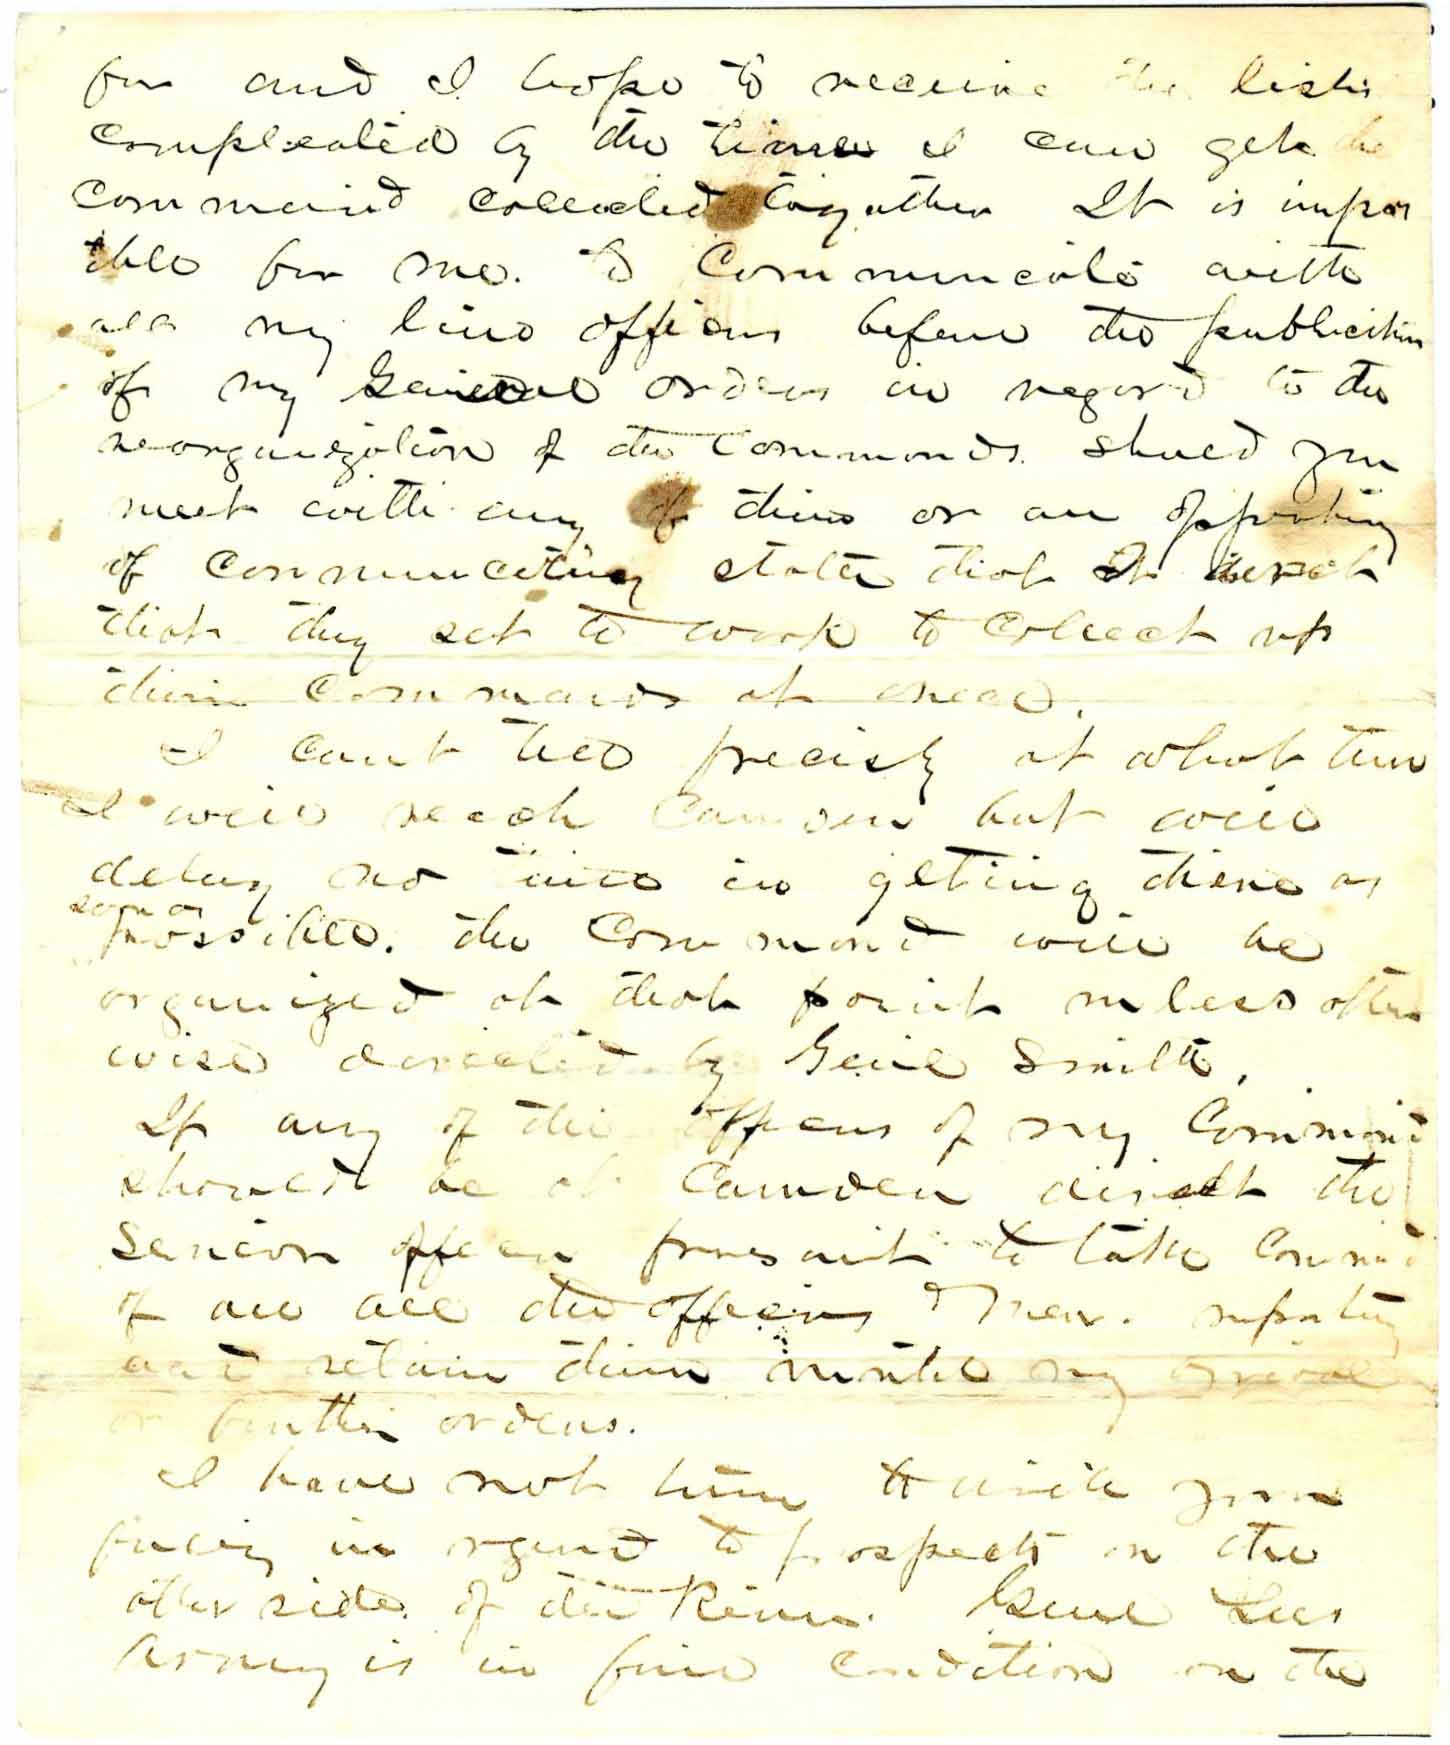 for and I hope to receive the lists
completed by the time I can get the
command collected together It is impos
ible for me. to Communicate with
all my line officers before the publication
of my General orders in regard to the
reorganization of the Commands. Should you
meet with any of them or an opportunity
of communicating state that I direct
that they set to work to Collect up
their Commands at once.
I cant tell precisly at what time
I will reach Camden but will
delay no time in getting there as
soon as
possible. the Command will be
organized at that point unless other
wise directed by Genl Smith.
If any of the officers of my Command
should be at Camden direct the
Senior officer present to take Command
of all the officers & men. reporting
and retain them untill my arrival
or further orders.
I have not time to write you
fully in regard to prospects on the
other side of the River. Genl Lees
Army is in fine condition on the